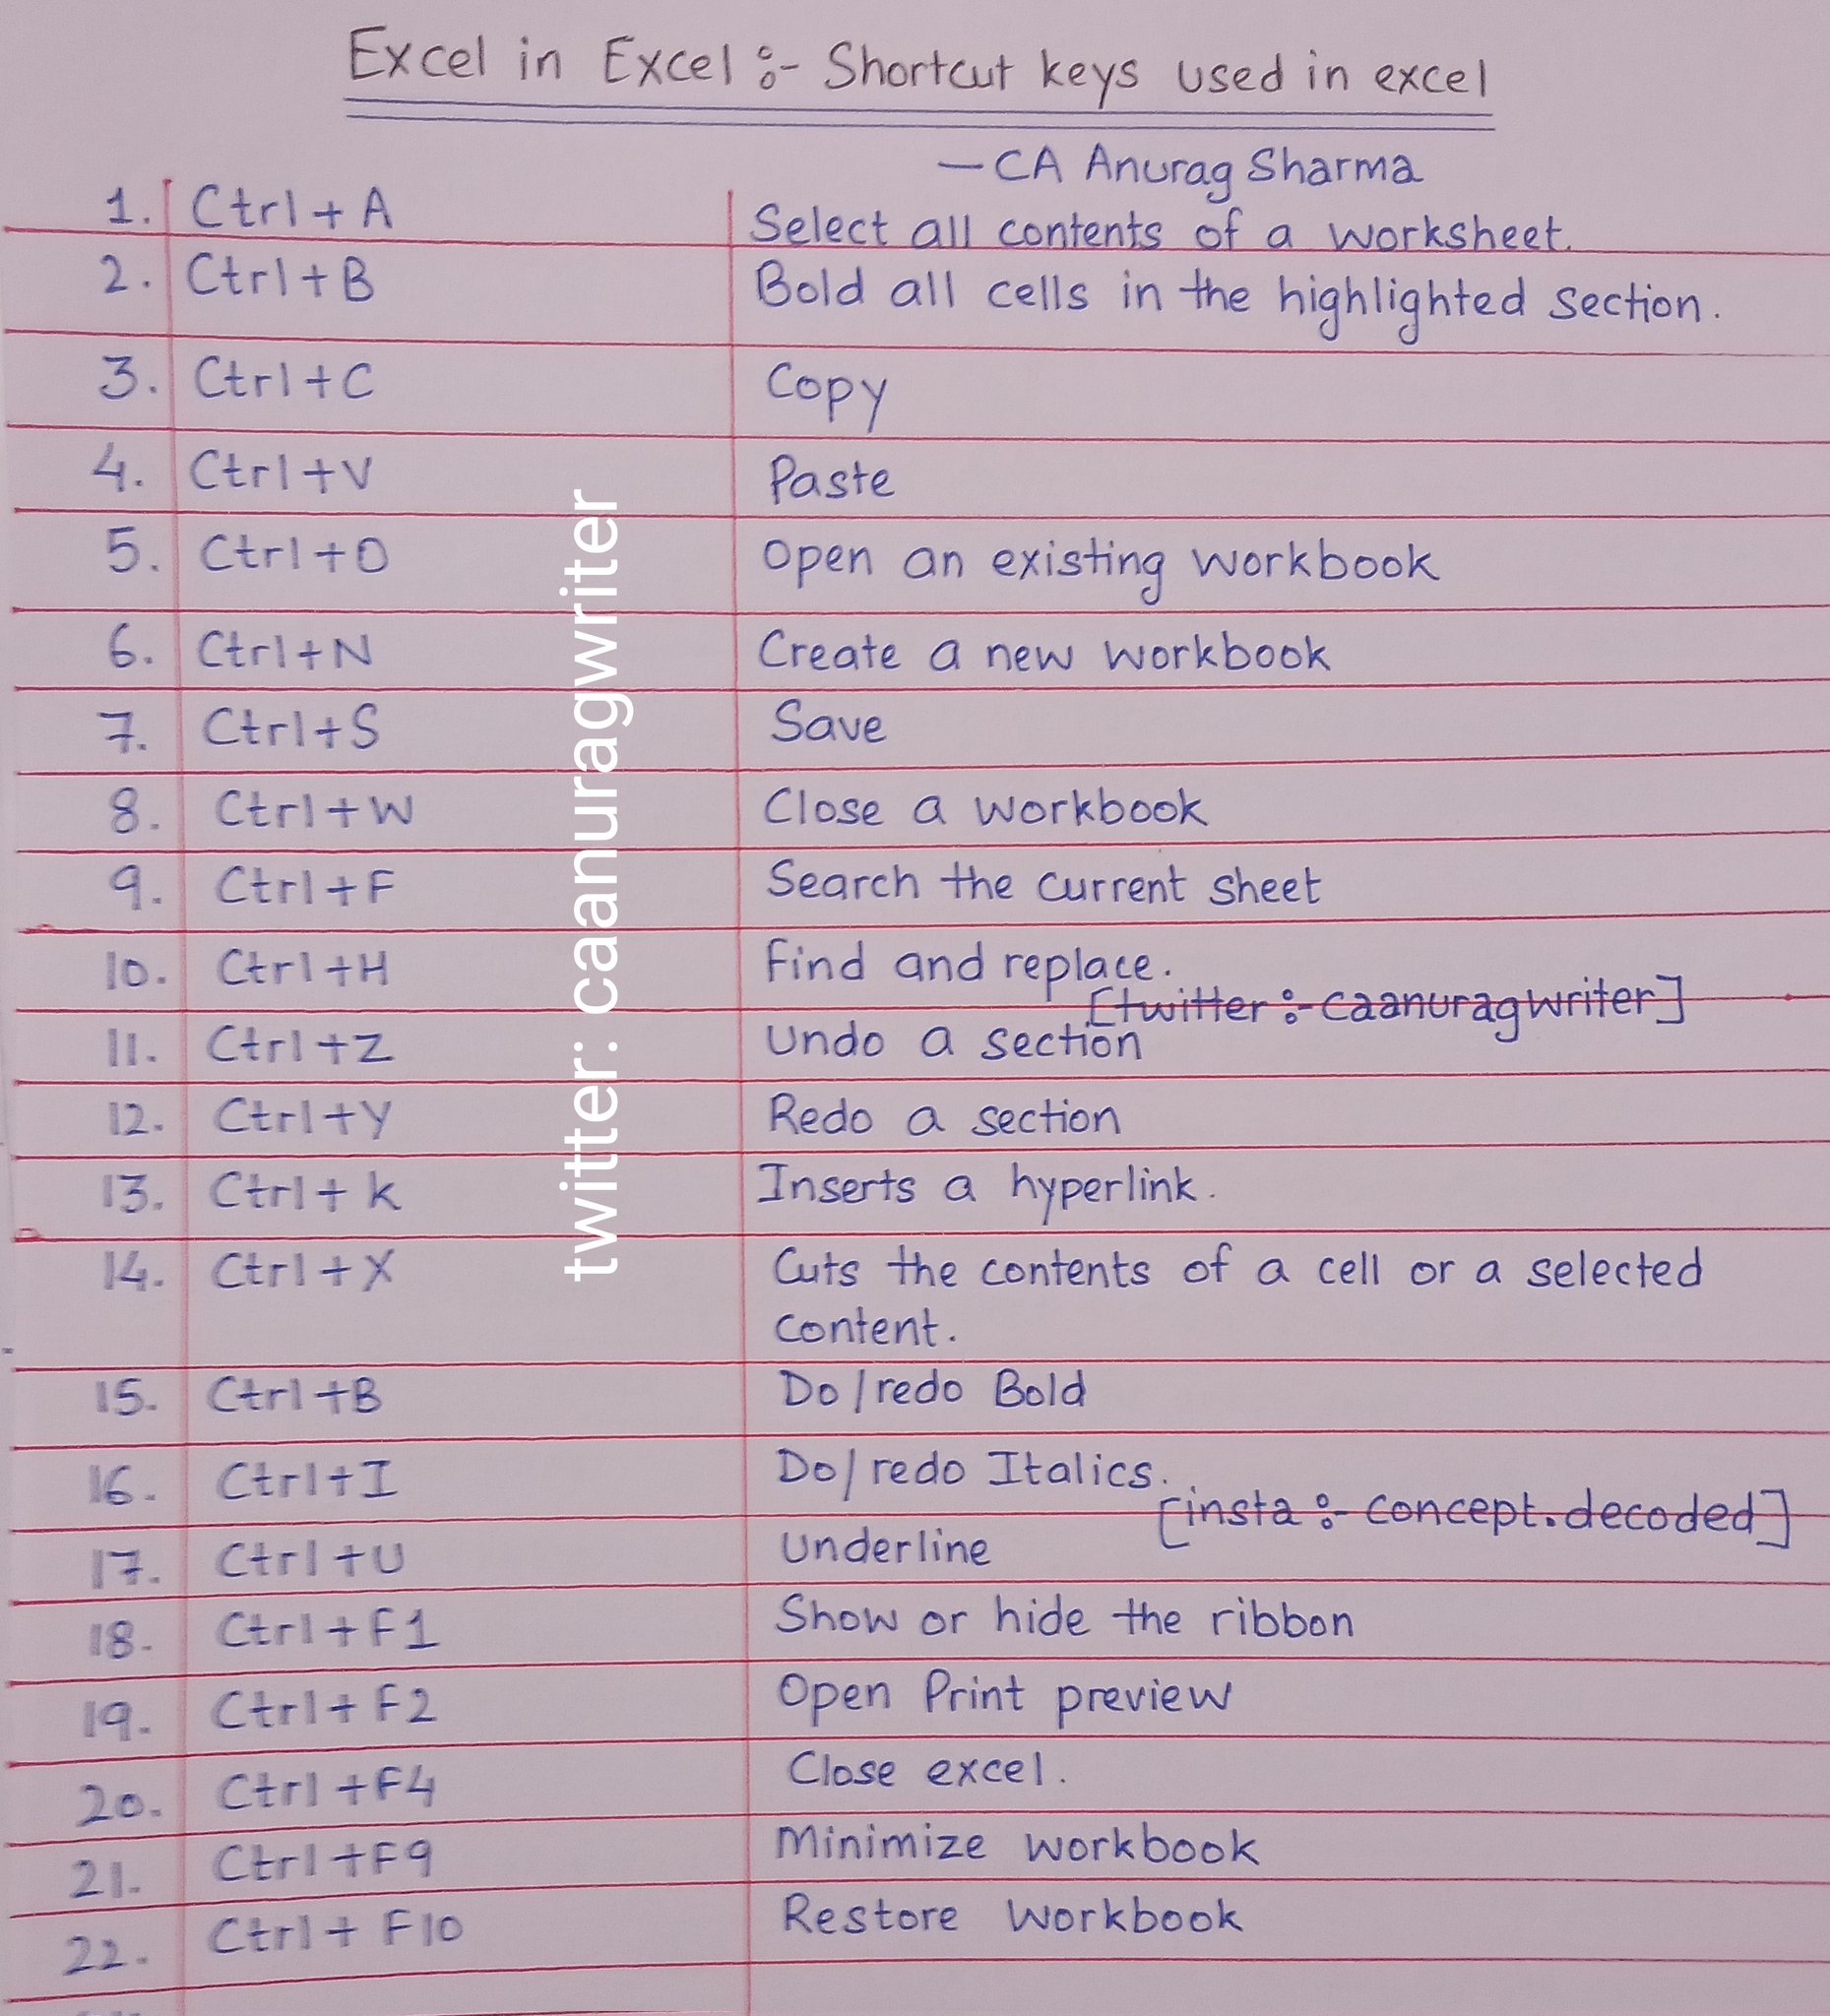 Excel in Excel :- Shortcut keys used in excel
— CA Anurag Sharma
1. Ctrl + A Select all contents of a worksheet.
2. Ctrl + B Bold all cells in the highlighted section.
3. Ctrl + C Copy
4. Ctrl + V Paste
5. Ctrl + O Open an existing workbook
6. Ctrl + N Create a new workbook
7. Ctrl + S Save
8. Ctrl + W Close a workbook
9. Ctrl + F Search the current sheet
10. Ctrl + H Find and replace.
[twitter :- caanuragwriter]
11. Ctrl + Z Undo a section
12. Ctrl + Y Redo a section
13. Ctrl + k Inserts a hyperlink.
14. Ctrl + X Cuts the contents of a cell or a selected
content.
15. Ctrl + B Do/redo Bold
16. Ctrl + I Do/redo Italics.
[insta :- concept.decoded]
17. Ctrl + U Underline
18. Ctrl + F1 Show or hide the ribbon
19. Ctrl + F2 Open Print preview
20. Ctrl + F4 Close excel.
21. Ctrl + F9 Minimize workbook
22. Ctrl + F10 Restore workbook
twitter: caanuragwriter